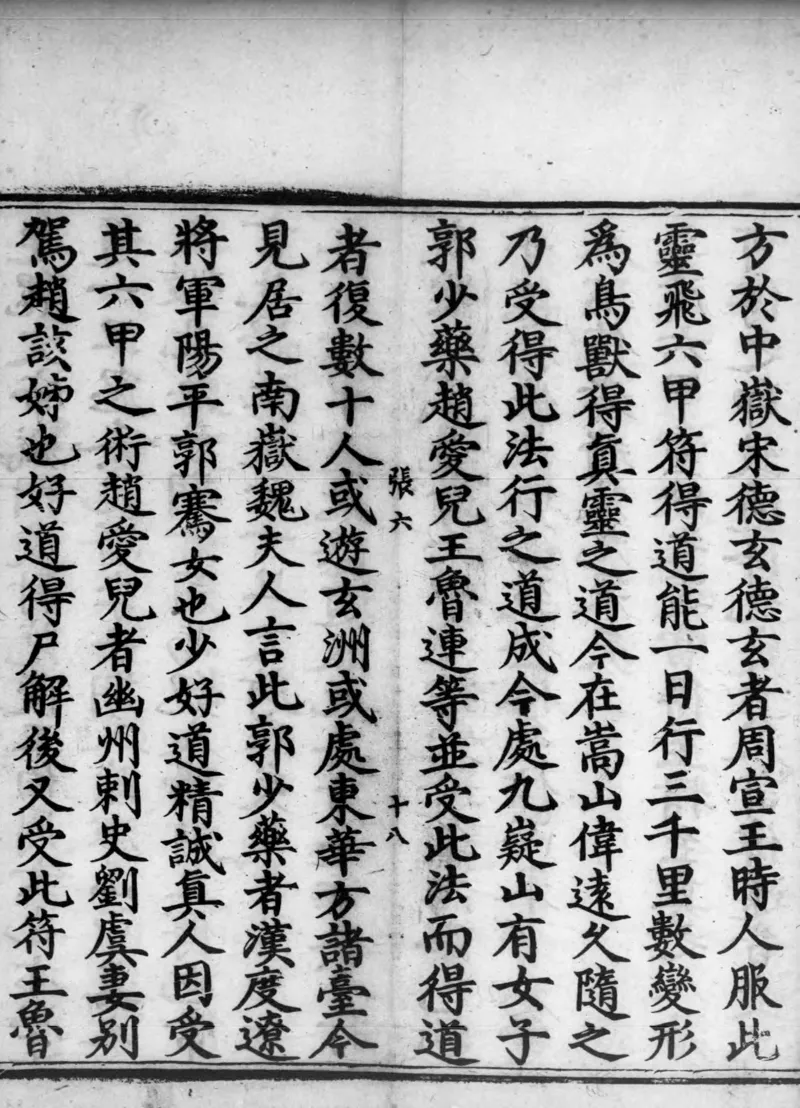 方於中嶽宋德玄德玄者周宣王時人服此
靈飛六甲符得道能一日行三千里數變形
爲鳥獸得真靈之道今在嵩山偉遠久隨之
乃受得此法行之道成今處九嶷山有女子
郭少藥趙愛兒王魯連等並受此法而得道
張六
十八
者復數十人或遊玄洲或處東華方諸臺今
見居之南嶽魏夫人言此郭少藥者漢度遼
將軍陽平郭騫女也少好道精誠真人因受
其六甲之術趙愛兒者幽州刺史劉虞妻別
駕趙該姊也好道得尸解後又受此符王魯